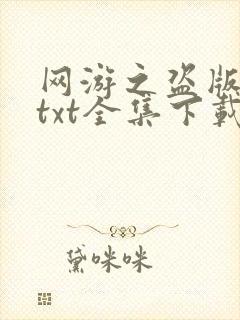 网游之盗版
txt全集下载
黛咪咪